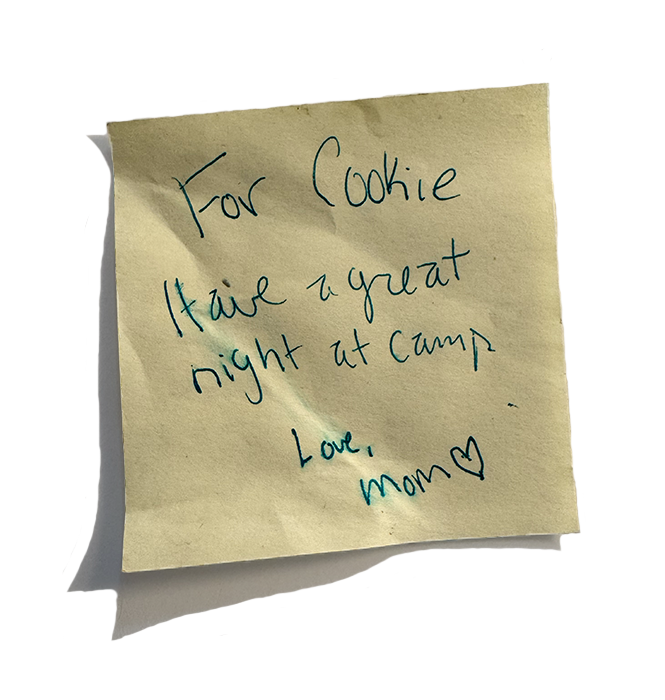 For Cookie
Have a great
night at camp
Love,
mom♡